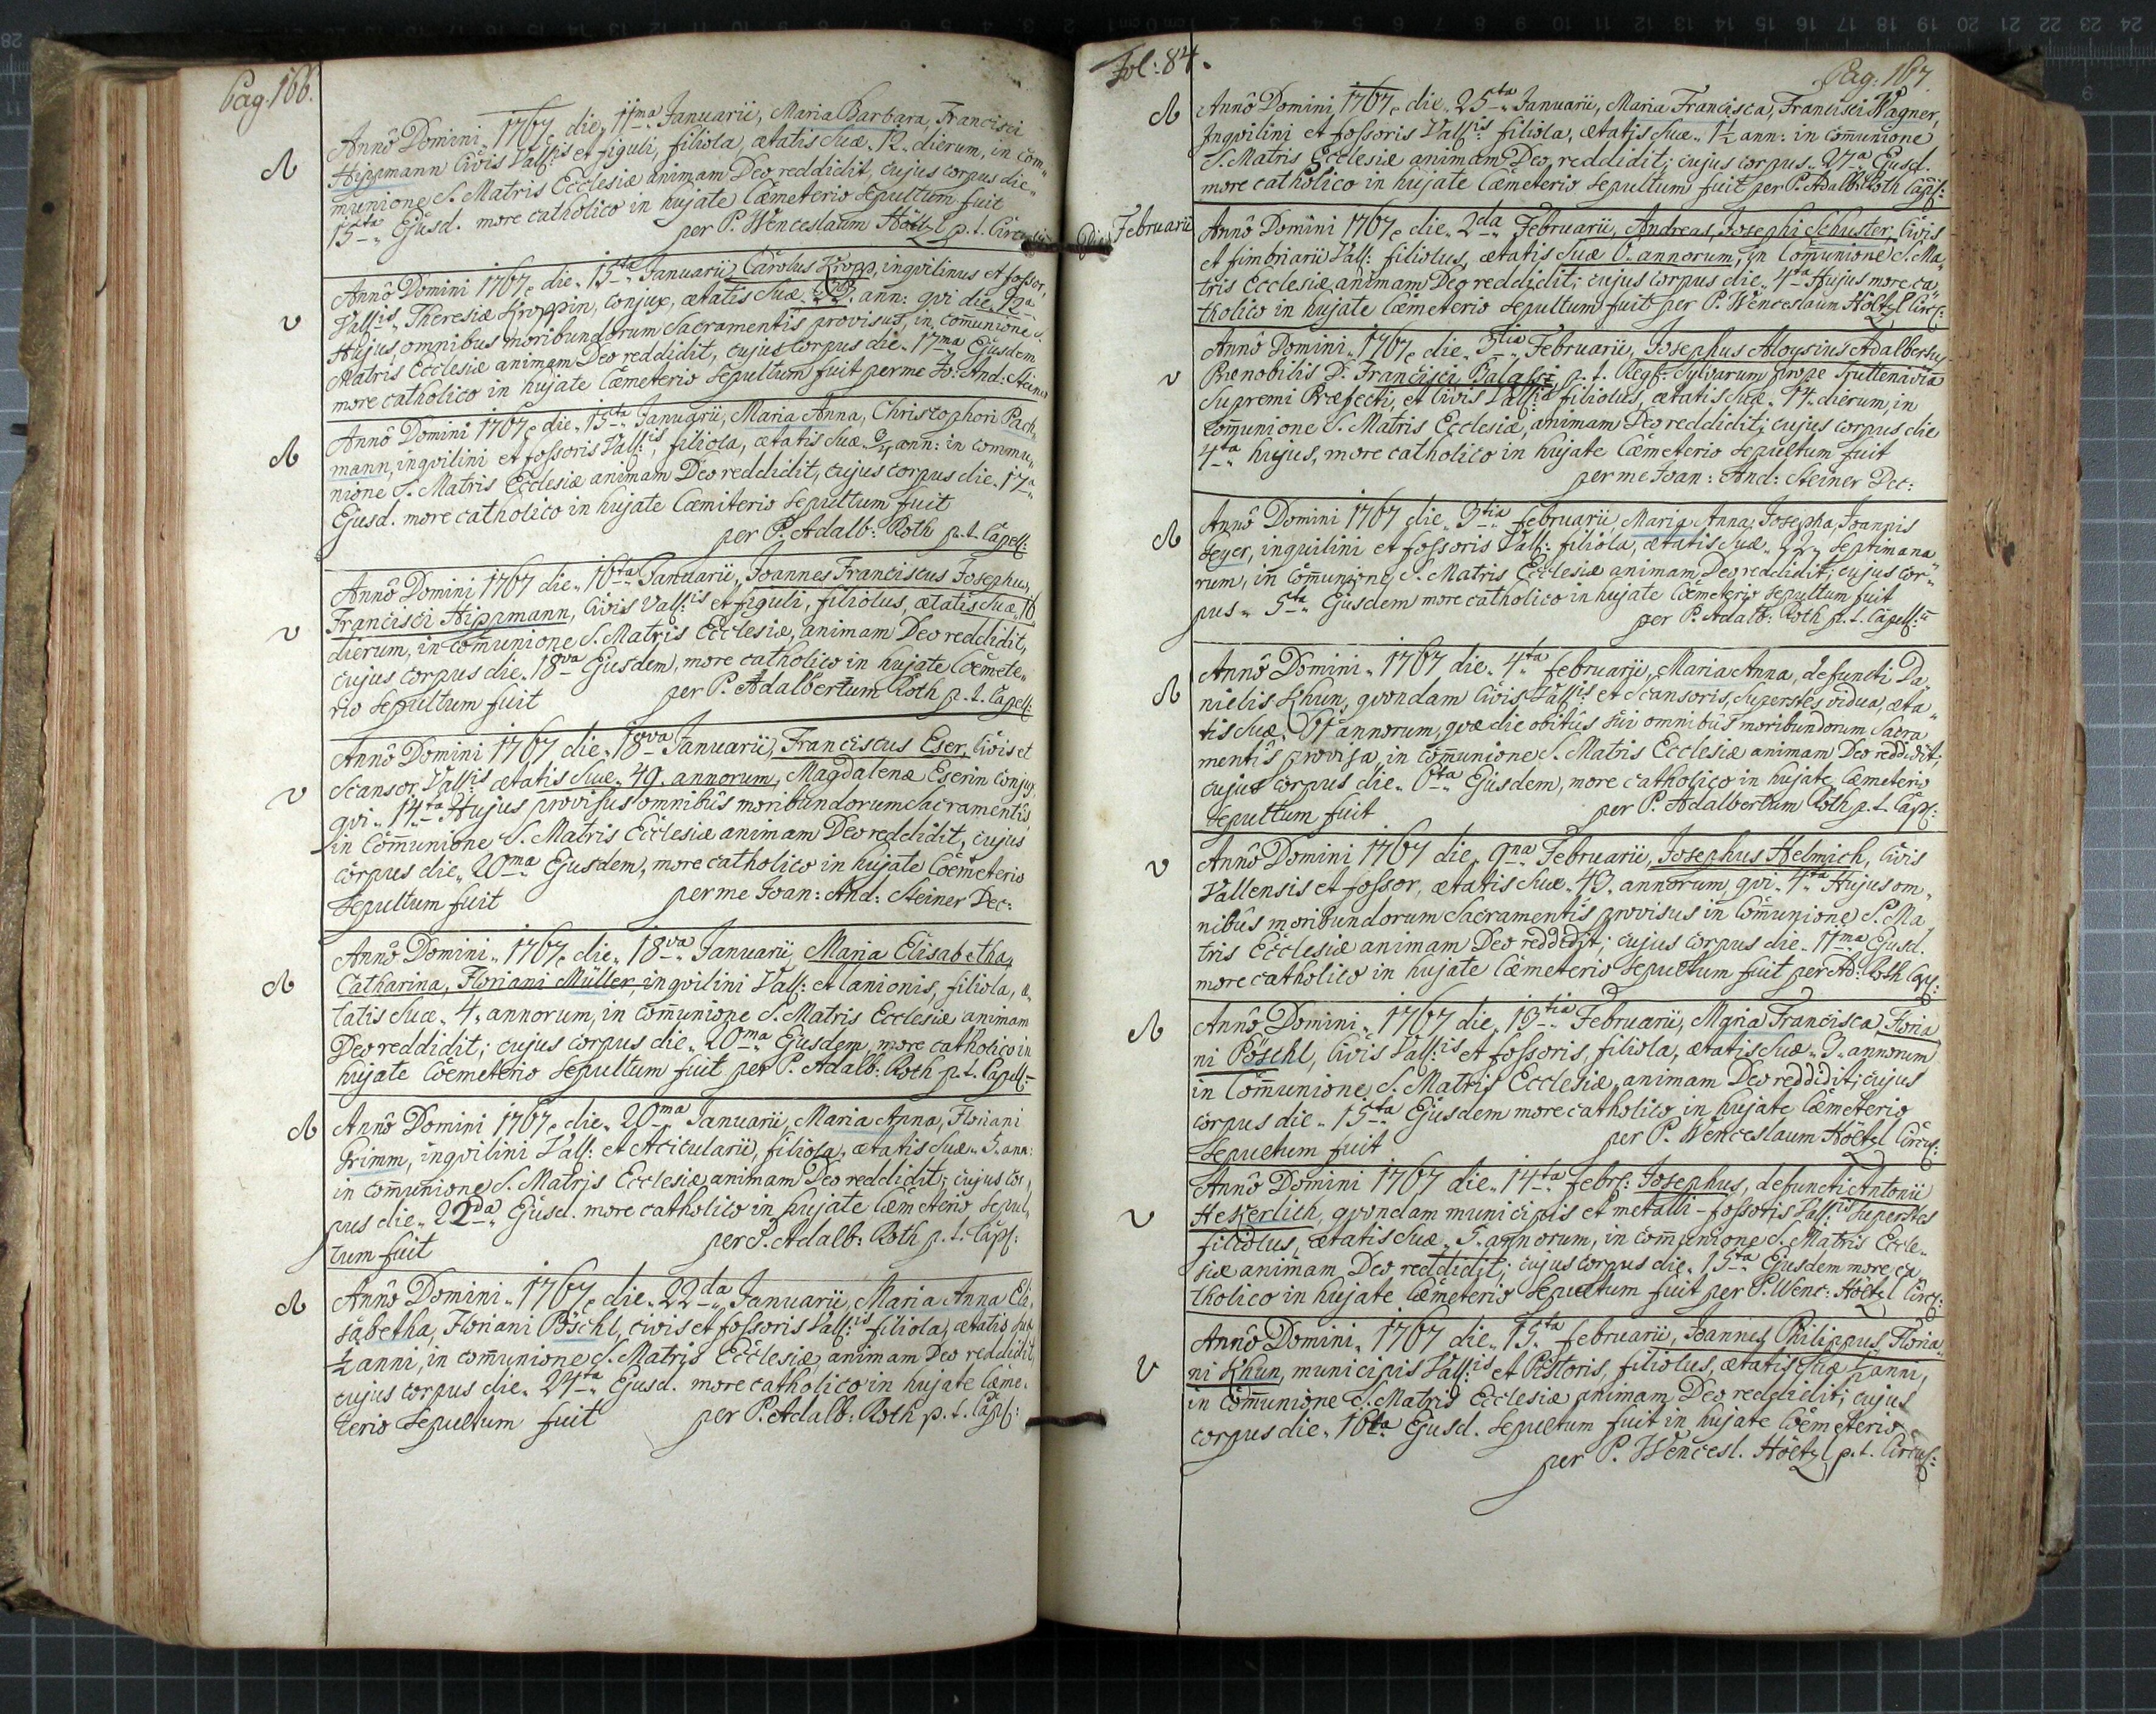 Pag. 166.
Annô Domini 1767 die 11ma Januarii, Maria Barbara, Francisci
Hippmann Civis Vall:is et figuli, filiola, ætatis suæ 12 dierum, in com„
munione S. Matris Ecclesiæ animam Deo reddidit, cujus corpus die
13ta Ejusd. more catholico in hujate Cæmeterio Sepultum fuit
per P. Wenceslaum Höltzl p. t.
Annô Domini 1767 die 15ta Januarii Carolus Kropp, inqvilinus et fossor,
Vall:is Theresiæ Kroppin, conjux, ætatis suæ ann: qvi die 12a
Hujus, omnibus moribundorum Sacramentis provisus, in communione S.
Matris Ecclesiæ animam Deo reddidit, cujus corpus die 17ma Ejusdem
more catholico in hujate Cæmeterio Sepultum fuit per me Jo: And: Steiner
Annô Domini 1767 die 15ta Januarii, Maria Anna, Christophori Pach„
mann, inqvilini et fossoris Vall:is, filiola, ætatis suæ 3/4 ann: in commu„
nione S. Matris Ecclesiæ animam Deo reddidit, cujus corpus die 17a
Ejusd. more catholico in hujate Cæmiterio Sepultum fuit
per P. Adalb: Roth p. t. Capell:
Annô Domini 1767 die 16ta Januarii, Joannes Franciscus Josephus,
Francisci Hippmann, Civis Vall:is et figuli, filiolus, ætatis suæ 16
dierum, in communione S. Matris Ecclesiæ, animam Deo reddidit,
cujus corpus die 18va Ejusdem, more catholico in hujate Cœmete„
rio Sepultum fuit per P. Adalbertum Roth p. t. Capell:
Annô Domini 1767 die 18va Januarii, Franciscus Eser, Civis et
Scansor Vall:is ætatis suæ 49. annorum, Magdalenæ Eserin conjux,
qvi 14ta Hujus provisus omnibûs moribundorum Sacramentîs,
in Communione S. Matris Ecclesiæ animam Deo reddidit, cujus
corpus die 20ma Ejusdem, more catholico in hujate Cœmeterio
Sepultum fuit per me Joan: And: Steiner Dec:
Annô Domini 1767 die 18va Januarii Maria Elisabetha,
Catharina, Floriani Müller, inqvilini Vall: et lanionis, filiola, æ„
tatis suæ 4 annorum, in communione S. Matris Ecclesiæ animam
Deo reddidit; cujus corpus die 20ma Ejusdem, more catholico in
hujate Cœmeterio Sepultum fuit per P. Adalb: Roth p. t. Capell:
Annô Domini 1767 die 20ma Januarii, Maria Anna, Floriani
Grimm, inqvilini Vall: et Acicularii, filiola, ætatis suæ 5 ann:
in communione S. Matris Ecclesiæ animam Deo reddidit; cujus cor„
pus die 22da Ejusd. more catholico in hujate Cœmeterio Sepul„
tum fuit per P. Adalb: Roth p. t. Capl:
Annô Domini 1767 die 22da Januarii, Maria Anna Eli„
sabetha, Floriani Pöschl, civis et fossoris Vall:is filiola, ætatis suæ
1/2 anni, in communione S. Matris Ecclesiæ, animam Deo reddidit,
cujus corpus die 24ta Ejusd. more catholico in hujate Cæme„
terio Sepultum fuit per P. Adalb: Roth p. t. Capl:
Fol: 84. Pag. 167.
Annô Domini 1767 die 25ta Januarii, Maria Francisca, Francisci Wagner,
Inqvilini et fossoris Vall:is filiola, ætatis suæ 1 1/2 ann: in communione
S. Matris Ecclesiæ animam Deo reddidit; cujus corpus 27a Ejusd.
more catholico in hujate Cæmeterio Sepultum fuit per P. Adalb: Roth Capl:
Februarii
Annô Domini 1767 die 2da Februarii, Andreas, Josephi Schuster, Civis
et fimbriarii Vall: filiolus, ætatis suæ 6. annorum, in Communione S. Ma„
tris Ecclesiæ, animam Deo reddidit; cujus corpus die 4ta Hujus more ca„
tholico in hujate Cæmeterio Sepultum fuit per P. Wenceslaum Höltzl Circ:
Annô Domini 1767 die 3tia Februarii, Josephus Aloysius Adalbertus
Prænobilis D. Francisci p. t. Sylvarum prope
Supremi Præfecti, et Civis Vall:is filiolus, ætatis suæ 14. dierum, in
Communione S. Matris Ecclesiæ, animam Deo reddidit; cujus corpus die
4ta hujus, more catholico in hujate Cæmeterio Sepultum fuit
per me Joan: And: Steiner Dec:
Annô Domini 1767 die 3tia februarii, Maria Anna, Josepha, Joannis
Seyer, inquilini et fossoris Vall: filiola, ætatis suæ 22 Septimana„
rum, in Communione S. Matris Ecclesiæ animam Deo reddidit; cujus cor„
pus 5ta Ejusdem more catholico in hujate Cœmeterio Sepultum fuit
per P. Adalb: Roth p. t. Capell:
Annô Domini 1767 die 4ta februarii, Maria Anna, defuncti Da„
nielis Khun, qvondam Civis Vall:is et Scansoris, Superstes vidua, æta„
tis suæ 61 annorum, qvæ die obitûs sui omnibûs moribundorum Sacra
mentîs provisa, in Communione S. Matris Ecclesiæ animam Deo reddidit;
cujus corpus die 6ta Ejusdem, more catholico in hujate Cæmeterio
Sepultum fuit per P. Adalbertum Roth p. t. Capl:
Annô Domini 1767 die 9na Februarii, Josephus Helmich, Civis
Vallensis et fossor, ætatis suæ 43. annorum, qvi 4ta Hujus om„
nibûs moribundorum Sacramentîs provisus in Communione S. Ma„
tris Ecclesiæ animam Deo reddidit; cujus corpus die 11ma Ejusd.
more catholico in hujate Cæmeterio Sepultum fuit per Ad: Roth Cap:
Annô Domini 1767 die 13tia Februarii, Maria Francisca, Floria„
ni Pöschl, Civis Vall:is et fossoris, filiola, ætatis suæ 3 annorum
in Communione S. Matris Ecclesiæ, animam Deo reddidit; cujus
corpus die 15ta Ejusdem more catholico in hujate Cæmeterio
Sepultum fuit per P. Wenceslaum Höltzl Circ:
Annô Domini 1767 die 14ta febr: Josephus, defuncti Antonii
Hekerlich, qvondam municipis et metalli-fossoris Vall:is Superstes
filiolus, ætatis suæ 5 annorum, in communione S. Matris Eccle„
siæ animam Deo reddidit; cujus corpus die 15ta Ejusdem more ca„
tholico in hujate Cæmeterio Sepultum fuit per P. Wenc: Höltzl Circ:
Annô Domini 1767 die 15ta februarii, Joannes Philippus, Floria„
ni Khun, municipis Vall:is et Pistoris, filiolus, ætatis suæ 1/2 anni,
in Communione S. Matris Ecclesiæ animam Deo reddidit; cujus
corpus die 16ta Ejusd. Sepultum fuit in hujate Cœmeterio
per P. Wencesl. Höltzl p. t. Circul: